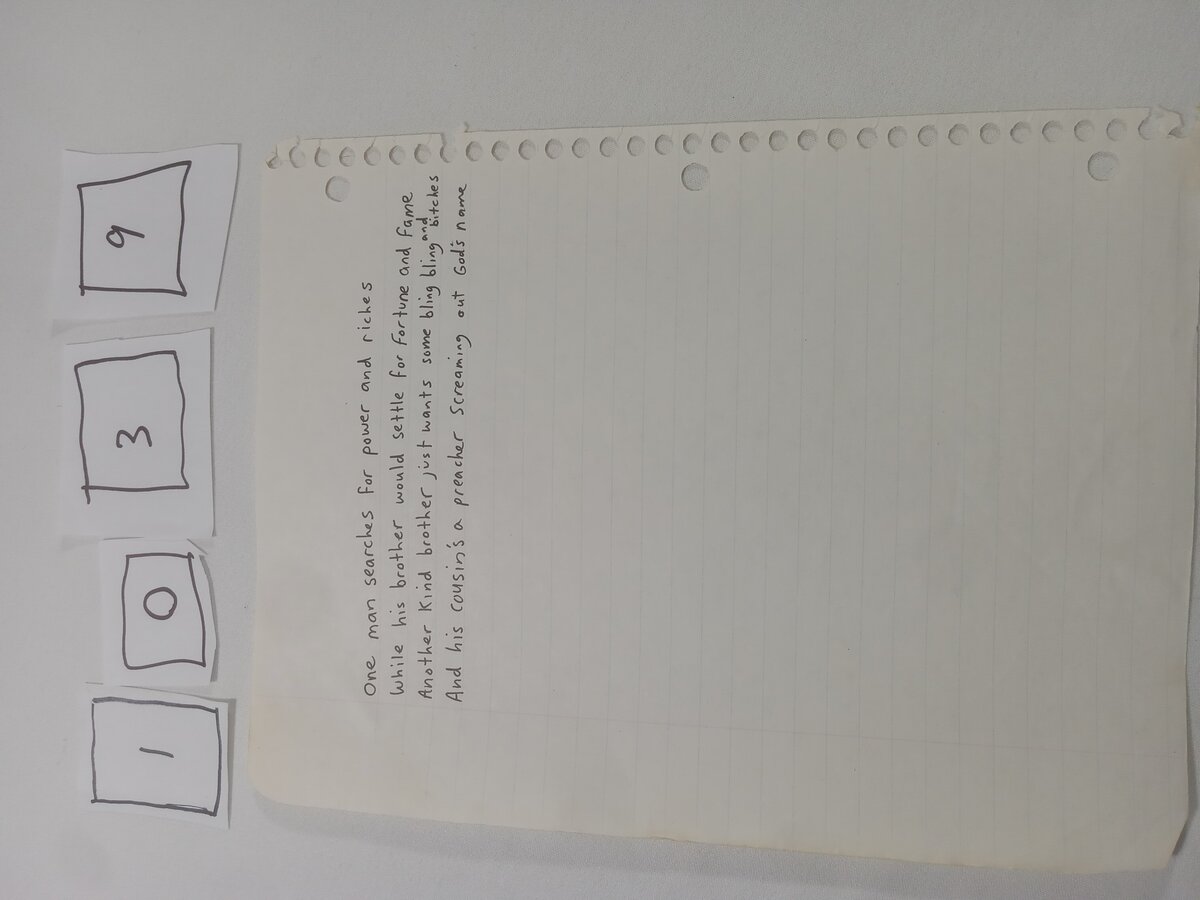 1 0 3 9
One man searches for power and riches
While his brother would settle for fortune and fame
Another kind brother just wants some bling bling and bitches
And his cousin's a preacher screaming out God's name